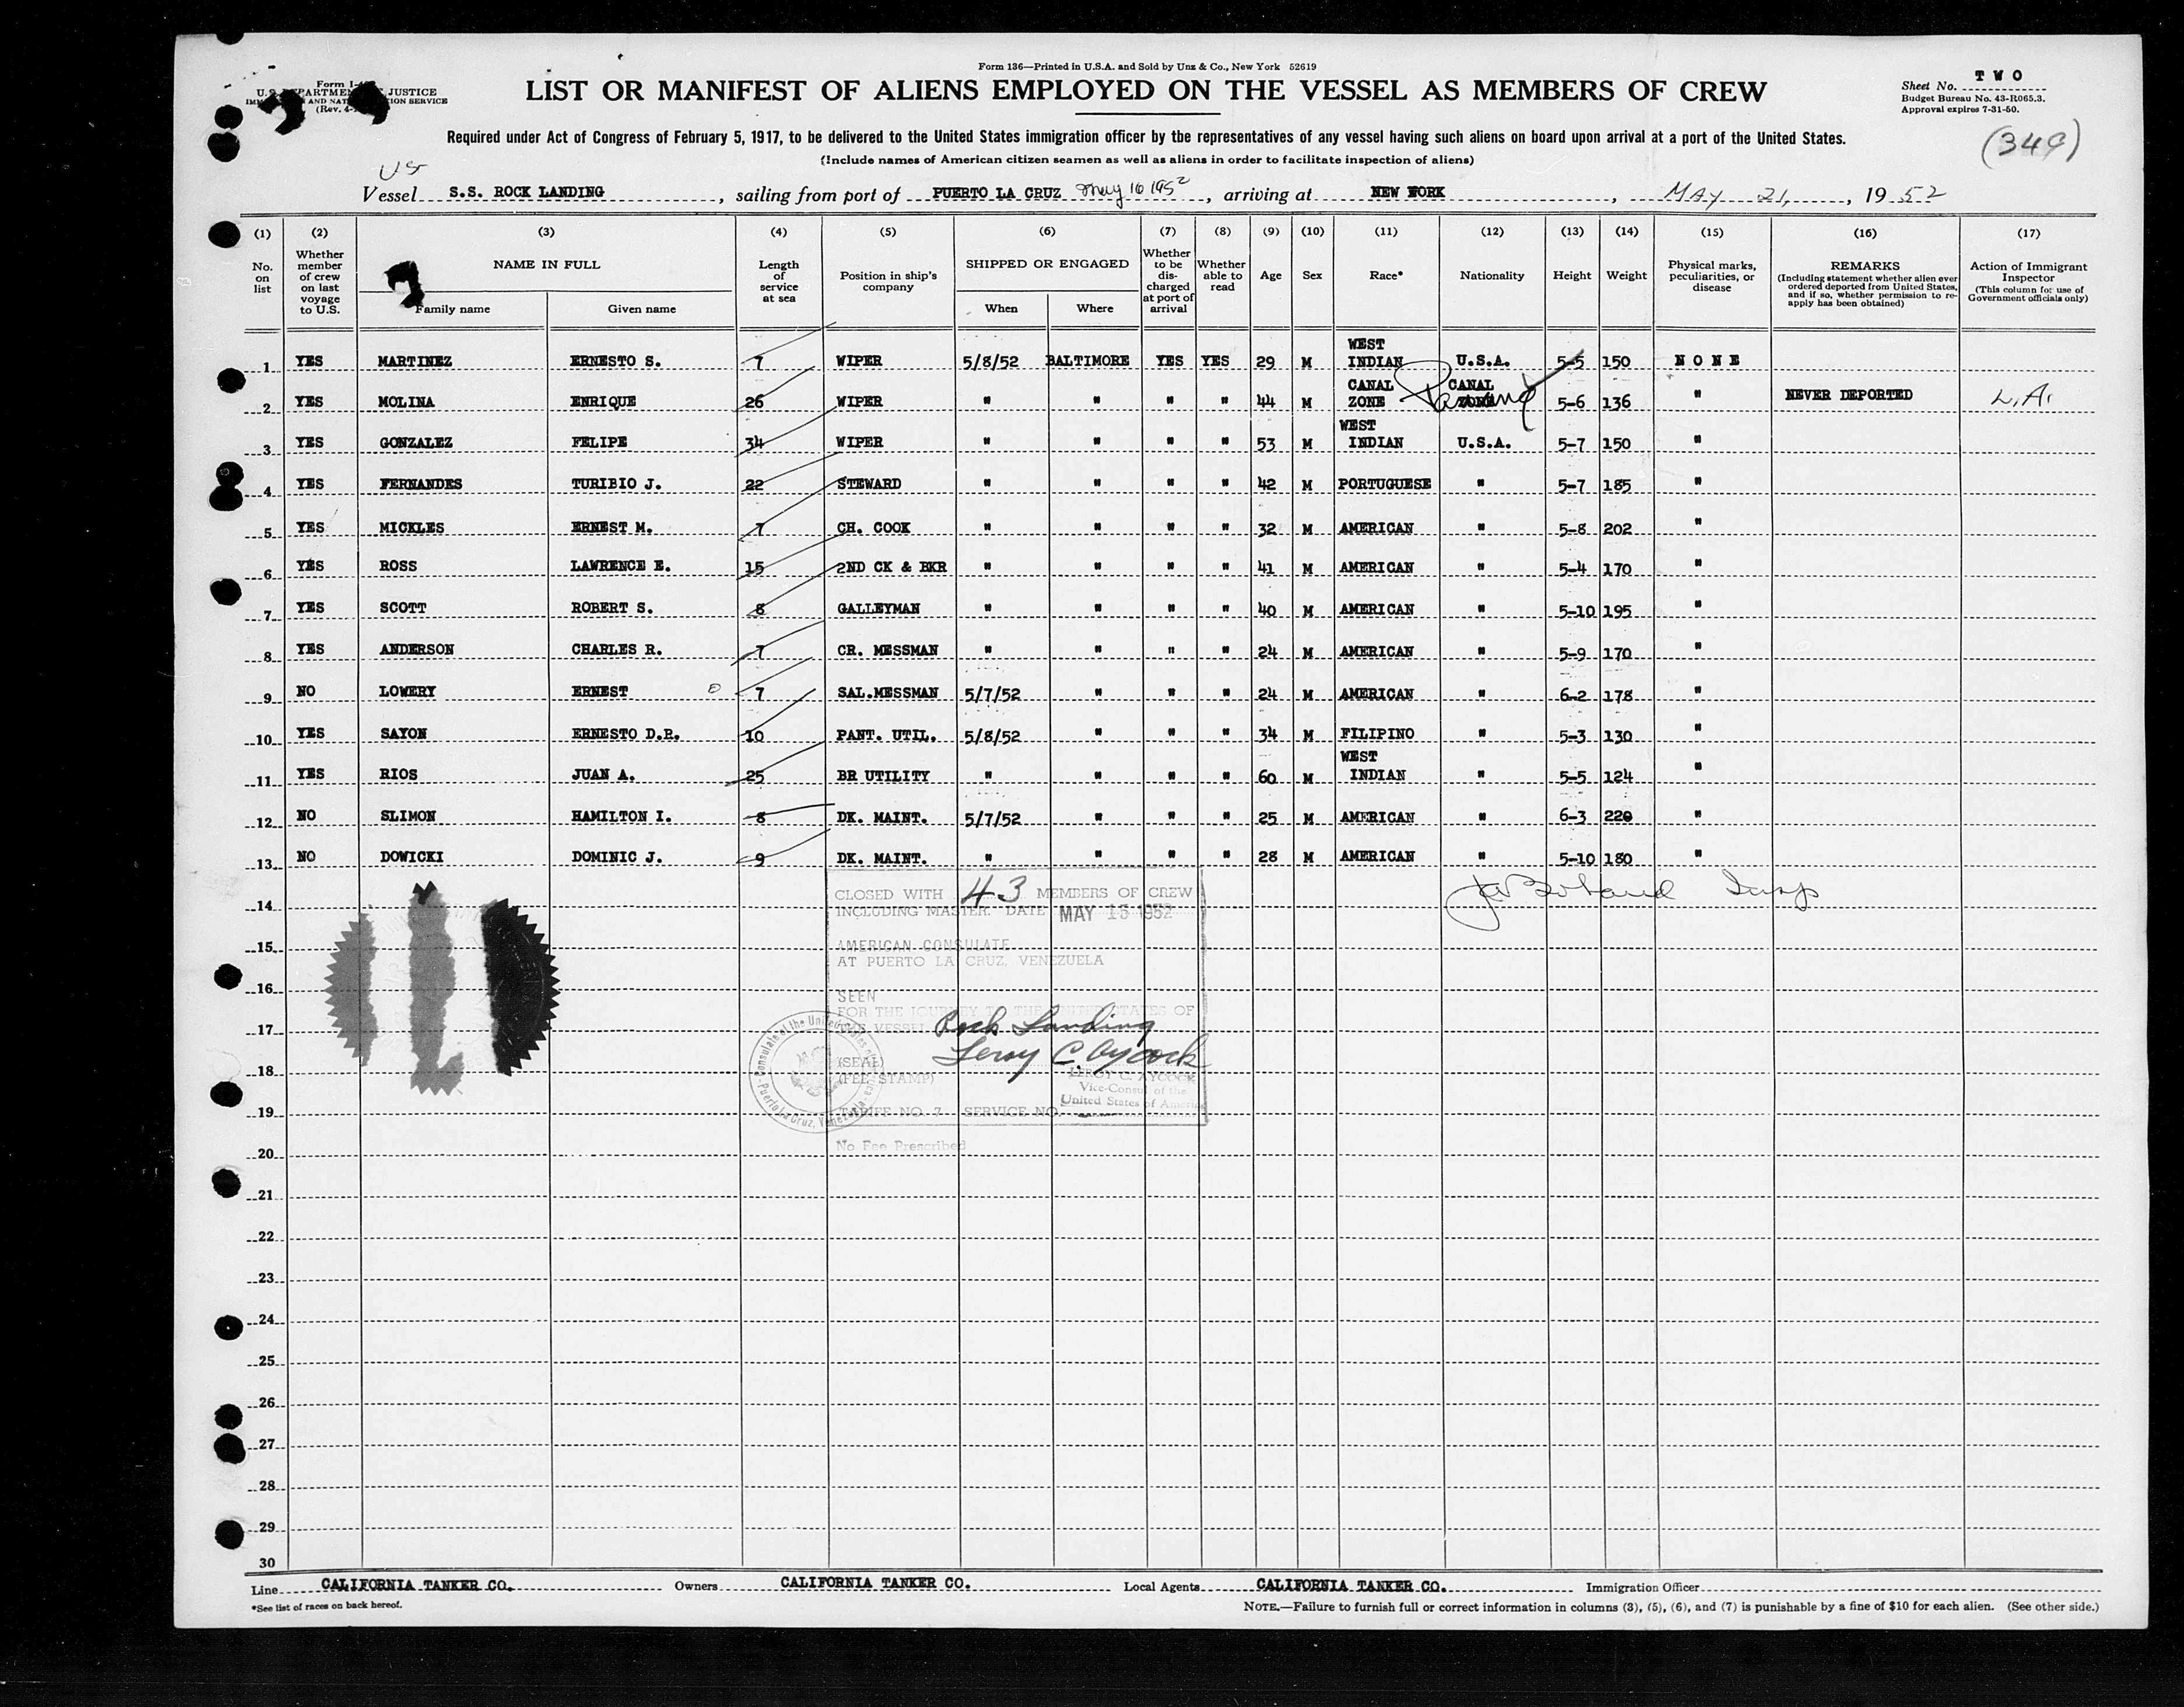 Form 136—Printed in U.S.A. and Sold by Unz & Co., New York 52619
Form I-
U.S. DEPARTMENT JUSTICE
AND SERVICE
(Rev. 4-
LIST OR MANIFEST OF ALIENS EMPLOYED ON THE VESSEL AS MEMBERS OF CREW
Sheet No. TWO
Budget Bureau No. 43-R065.3.
Approval expires 7-31-50.
Required under Act of Congress of February 5, 1917, to be delivered to the United States immigration officer by the representatives of any vessel having such aliens on board upon arrival at a port of the United States.
(Include names of American citizen seamen as well as aliens in order to facilitate inspection of aliens)
US
Vessel S.S. ROCK LANDING, sailing from port of PUERTO LA CRUZ May 16 1952, arriving at NEW YORK, MAY 21, 1952
(1) (2) (3) (4) (5) (6) (7) (8) (9) (10) (11) (12) (13) (14) (15) (16) (17)
No. on list
Whether member of crew on last voyage to U.S.
NAME IN FULL
Family name Given name
Length of service at sea
Position in ship's company
SHIPPED OR ENGAGED
When Where
Whether to be discharged at port of arrival
Whether able to read
Age Sex Race* Nationality Height Weight
Physical marks, peculiarities, or disease
REMARKS
(Including statement whether alien ever ordered deported from United States, and if so, whether permission to re-apply has been obtained)
Action of Immigrant Inspector
(This column for use of Government officials only)
1 YES MARTINEZ ERNESTO S. 7 WIPER 5/8/52 BALTIMORE YES YES 29 M WEST INDIAN U.S.A. 5-5 150 NONE
2 YES MOLINA ENRIQUE 26 WIPER " " " " 44 M CANAL ZONE CANAL ZONE Panama 5-6 136 " NEVER DEPORTED L.A.
3 YES GONZALEZ FELIPE 34 WIPER " " " " 53 M WEST INDIAN U.S.A. 5-7 150 "
4 YES FERNANDES TURIBIO J. 22 STEWARD " " " " 42 M PORTUGUESE " 5-7 185 "
5 YES MICKLES ERNEST M. 7 CH. COOK " " " " 32 M AMERICAN " 5-8 202 "
6 YES ROSS LAWRENCE E. 15 2ND CK & BKR " " " " 41 M AMERICAN " 5-4 170 "
7 YES SCOTT ROBERT S. 8 GALLEYMAN " " " " 40 M AMERICAN " 5-10 195 "
8 YES ANDERSON CHARLES R. 7 CR. MESSMAN " " " " 24 M AMERICAN " 5-9 170 "
9 NO LOWERY ERNEST 7 SAL.MESSMAN 5/7/52 " " " 24 M AMERICAN " 6-2 178 "
10 YES SAYON ERNESTO D.R. 10 PANT. UTIL. 5/8/52 " " " 34 M FILIPINO " 5-3 130 "
11 YES RIOS JUAN A. 25 BR UTILITY " " " " 60 M WEST INDIAN " 5-5 124 "
12 NO SLIMON HAMILTON I. 8 DK. MAINT. 5/7/52 " " " 25 M AMERICAN " 6-3 220 "
13 NO DOWICKI DOMINIC J. 9 DK. MAINT. " " " " 28 M AMERICAN " 5-10 180 "
14
15
16
17
18
19
20
21
22
23
24
25
26
27
28
29
30
CLOSED WITH 43 MEMBERS OF CREW
INCLUDING MASTER. DATE MAY 15 1952
AMERICAN CONSULATE
AT PUERTO LA CRUZ, VENEZUELA
SEEN
FOR THE JOURNEY TO THE UNITED STATES OF
THE VESSEL Rock Landing
Leroy C. Aycock
(SEAL)
(FEE STAMP)
LEROY C. AYCOCK
Vice-Consul of the
United States of America
TARIFF NO. 7 SERVICE NO.
No Fee Prescribed
Line CALIFORNIA TANKER CO. Owners CALIFORNIA TANKER CO. Local Agents CALIFORNIA TANKER CO. Immigration Officer
*See list of races on back hereof.
NOTE.—Failure to furnish full or correct information in columns (3), (5), (6), and (7) is punishable by a fine of $10 for each alien. (See other side.)